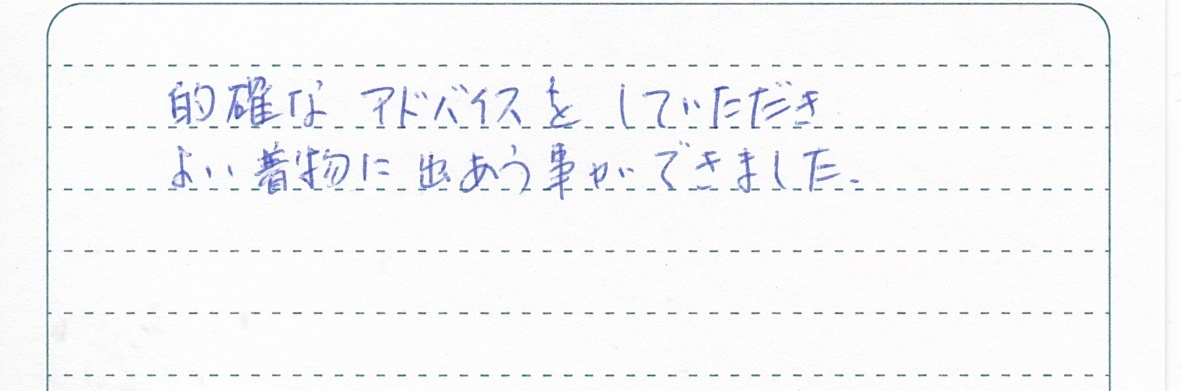 的確な アドバイスを していただき
よい着物に 出あう事ができました.